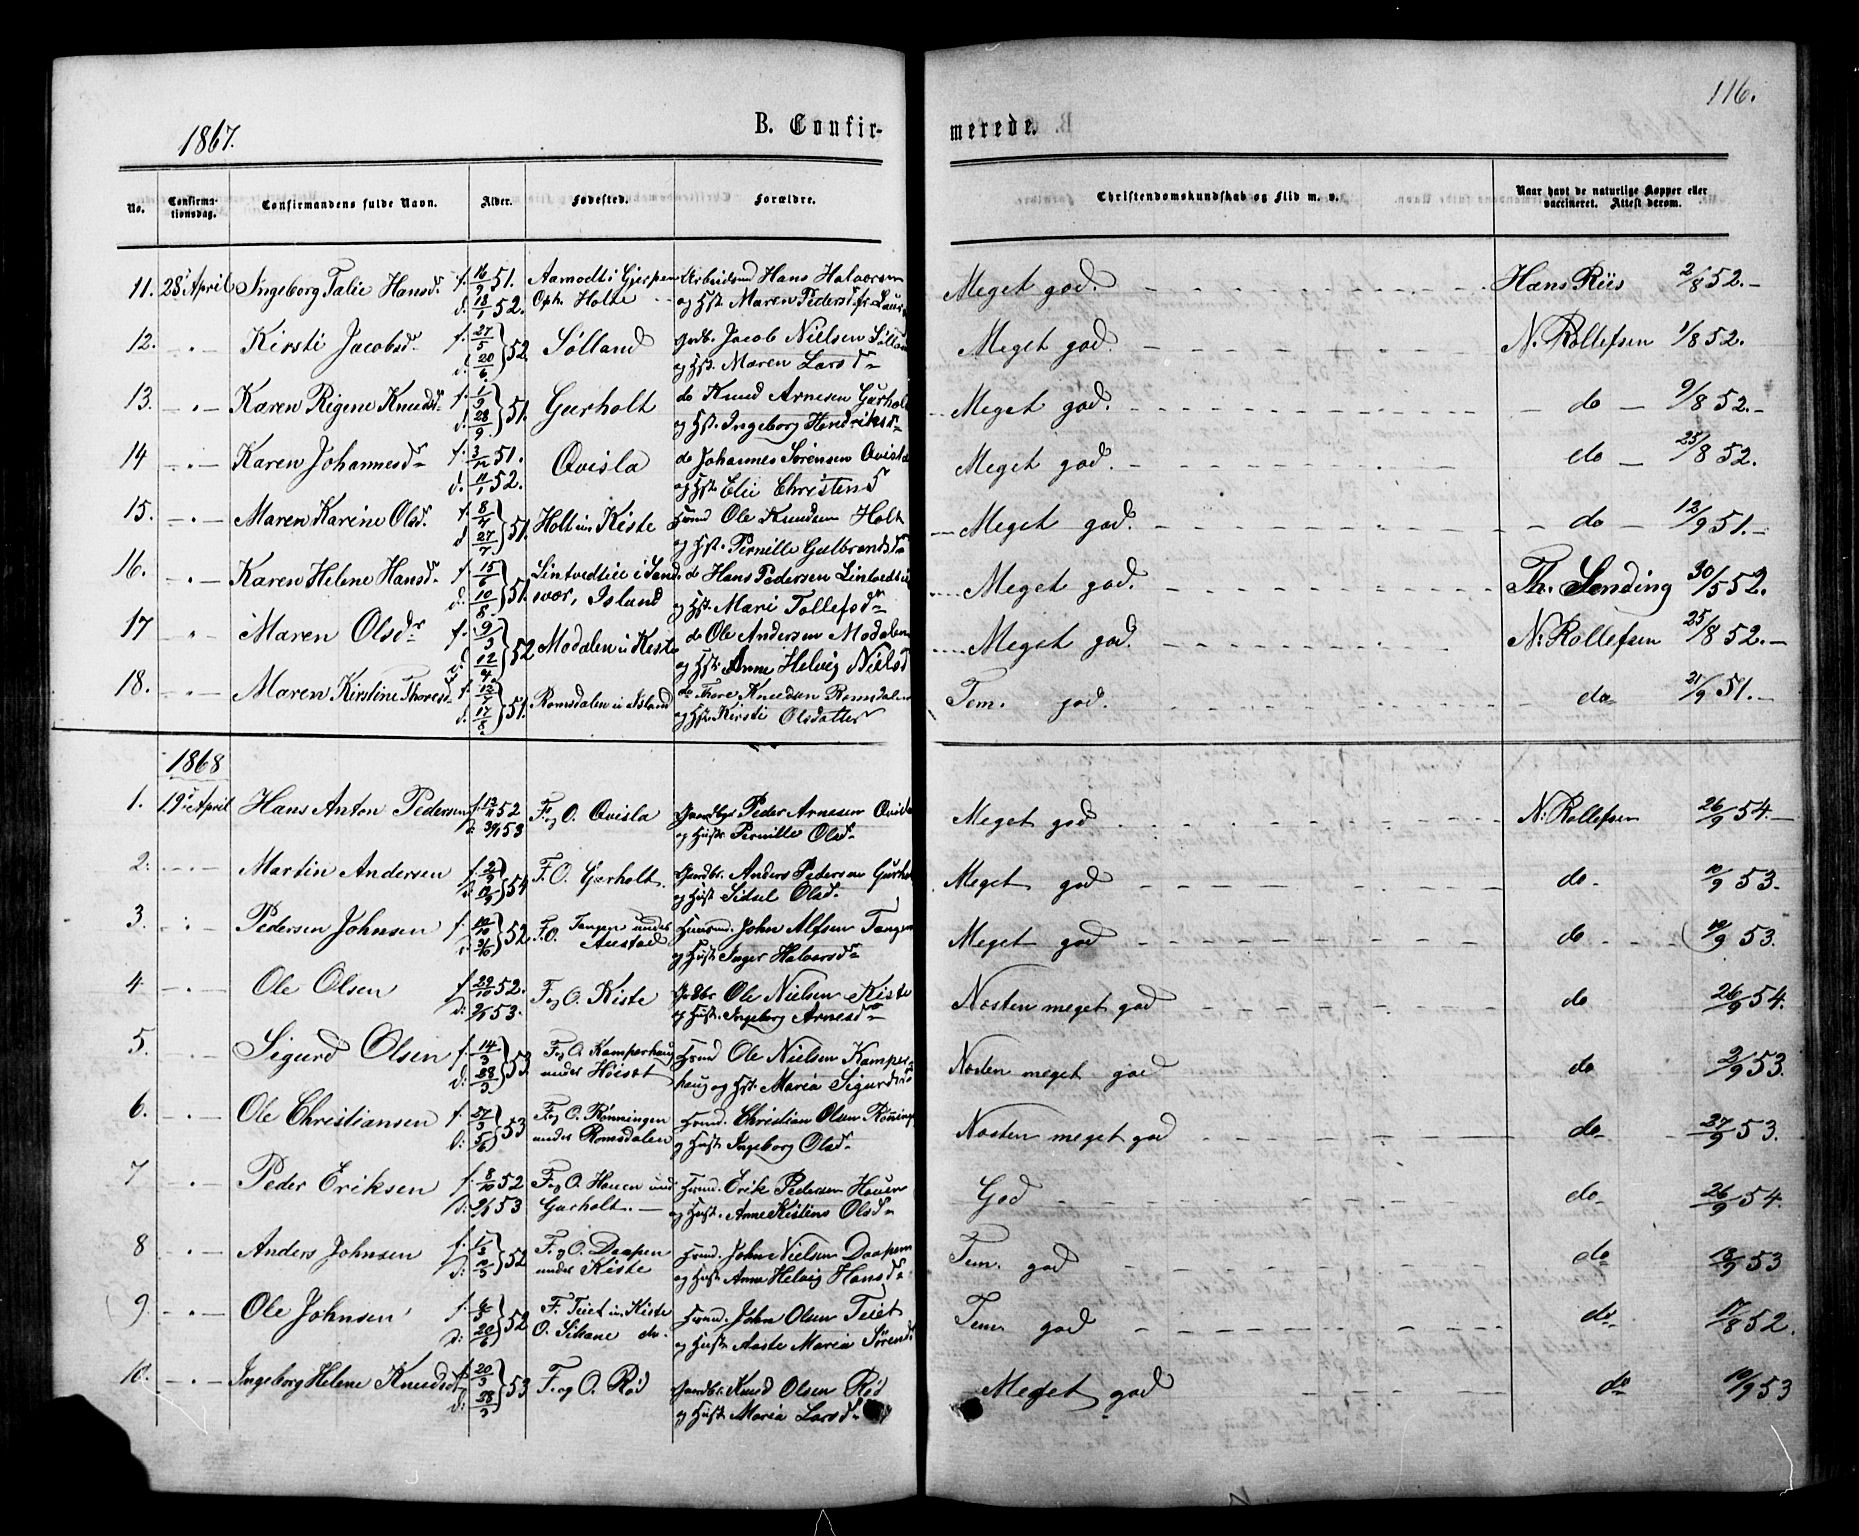 116.
1867.
B. Confir-
merede.
No. Confirmationsdag. Confirmandens fulde Navn. Alder. Fødested. Forældre. Christendomskundskab og Flid m. v. Naar havt de naturlige Kopper eller vaccineret. Attest derom.
11. 28de April Ingeborg Talie Hansd. f. 16/9 51. Aamodt i Gjerpen Arbeidsmd Hans Halvorsen Meget god. Hans Riis 2/8 52.
d. 18/1 52. Oph. Holte og Hst. Maren Pedersd.
12. " Kirsti Jacobsd. f. 27/5 d. 20/6 52. Sølland Gdb. Jacob Nielsen Sølland Meget god. N. Rollefsen 1/8 52.
og Hst. Maren Larsd
13. " Karen Rigene Knudsd f. 1/9 d. 28/9 51. Gurholt do Knud Arnesen Gurholt Meget god. do 9/8 52.
og Hst. Ingeborg Hendriksd
14 " Karen Johannesd f. 3/12 51. Qvisla do Johannes Sørensen Qvisla Meget god. do 25/8 52.
d. 11/1 52. og Hst. Elie Christensd
15. " Maren Karine Olsd. f. 8/7 d. 27/7 51. Holt u. Kiste Hmd Ole Knudsen Holt Meget god. do 12/9 51.
og Hst. Pernille Gulbrandsd
16. " Karen Helene Hansd. f. 15/6 d. 10/8 51. Lintvedteie i Sand- do Hans Pedersen Lintvedtei Meget god. Th. Sending 30/5 52.
svær, Island og Hst. Mari Tollefsd
17 " Maren Olsdr f. 9/3 d. 12/4 52 Modalen u Kiste do Ole Andersen Modalen Meget god. N. Rollefsen 25/8 52.
og Hst. Anne Helvig Nielsd
18. " Maren Kirstine Thoresd f. 12/7 d. 17/8 51. Romsdalen u Island do Thore Knudsen Romsdalen Tem. god. do 21/9 51.
og Hst. Kirsti Olsdatter
1868
1. 19de April Hans Anton Pedersen f. 12/11 52 F. og O. Qvisla Gaardbr Peder Arnesen Qvisla Meget god N. Rollefsen 26/9 54.
53 og Hustr. Pernille Olsd.
2. " Martin Andersen 54 F. O. Gurholt. Gaardbr. Anders Pedersen Gurholt Meget god do 10/9 53.
og Hust Sidsel Olsd.
3. " Pedersen Johnsen f. 10/10 d. 31/10 52. F. O. Tangen under Huusmd. John Alfsen Tangen Meget god do 10/9 53.
Austad og Hust. Inger Halvorsd
4. " Ole Olsen f. 29/10 52. F. og O. Kiste Grdbr. Ole Nielsen Kiste Næsten meget god do 26/9 54.
53. og Hust. Ingeborg Arnesd
5. " Sigurd Olsen f. 14/3 d. 28/3 53 F. og O. Kamperhaug Hmd Ole Nielsen Kamper- Næsten meget god do 2/9 53.
under Høiset haug og Hst. Maria Sigurdsd
6. " Ole Christiansen f. 27/3 d. 5/6 53 F. og O. Rønningen Hmd. Christian Olsen Rønning Næsten meget god do 27/9 53.
under Romsdalen og Hust Ingeborg Olsd
7 " Peder Eriksen f. 8/10 52 F. og O. Hauen und Hmd. Erik Pedersen Hauen God do 26/9 54.
53 Gurholt. og Hust. Anne Kistine Olsd
8 " Anders Johnsen 52 F. og O. Daapen Hmd. John Nielsen Daapen Tem. god do 18/9 53
under Kiste og Hust. Anne Helvig Hansd
9 " Ole Johnsen 52 F. Teiet u Kiste Hmd. John Olsen Teiet Tem. god do 17/8 52.
O. do. og Hust. Aaste Maria Sørensd
10. " Ingeborg Helene Knudsd f. 20/3 d. 28/3 53 F. og O. Rød Gaardbr. Knud Olsen Rød Meget god do 10/9 53
og Hust Maria Larsd